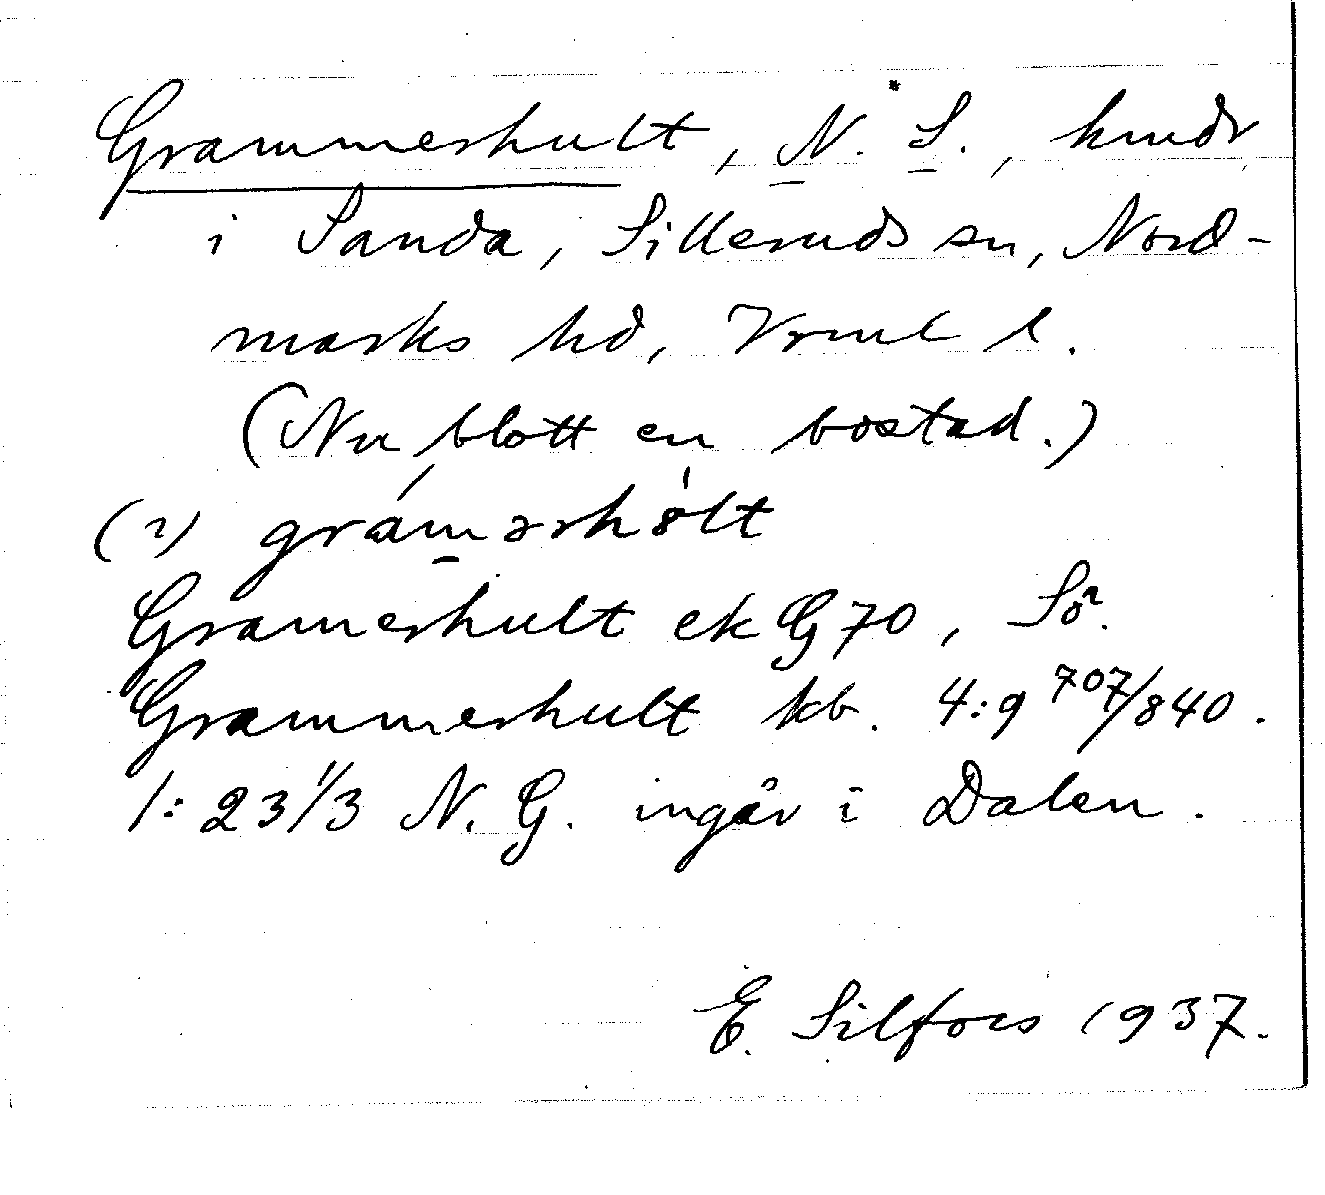 Grammerhult, N. S., hmdr
i Sanda, Silleruds sn, Nord-
marks hd, Vrml l.
(Nu blott en bostad.)
(2) gramərhɵlt
Gramerhult ek G 70, Sö.
Grammerhult kb. 4:9 707/840.
1:23 1/3 N. G. ingår i Dalen.
E. Silfors 1937.